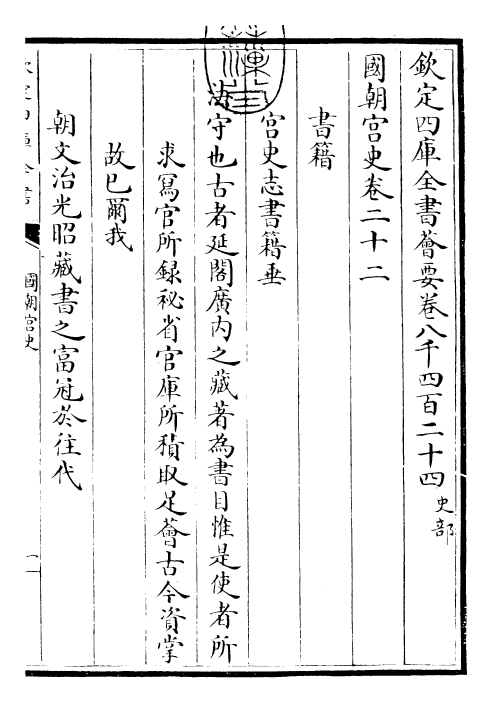 欽定四庫全書薈要卷八千四百二十四 史部
國朝宮史卷二十二
書籍
宮史志書籍垂
法守也古者延閣廣内之藏著為書目惟是使者所
求寫官所録祕省官庫所積取足薈古今資掌
故已爾我
朝文治光昭藏書之富冠於往代
欽定四庫全書
國朝宮史
一